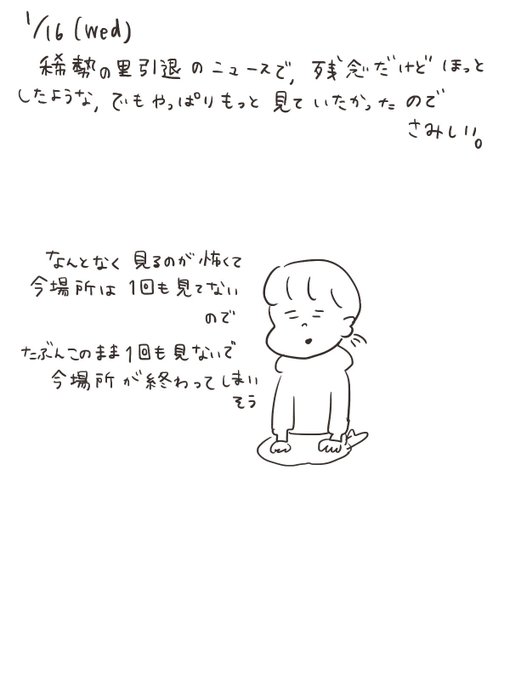 1/16 (Wed)
稀勢の里引退のニュースで, 残念だけどほっと
したような, でもやっぱりもっと見ていたかったので
さみしい。
なんとなく見るのが怖くて
今場所は1回も見てない
ので
たぶんこのまま1回も見ないで
今場所が終わってしまい
そう